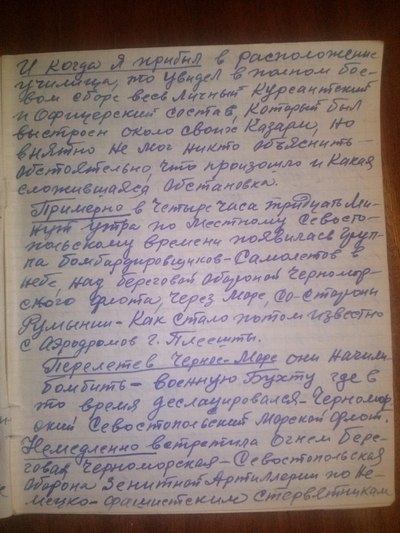 И когда я прибыл в расположение
училища, то увидел в полном бое-
вом сборе весь личный курсантский
и офицерский состав, который был
выстроен около своих казарм, но
внятно не мог никто объяснить-
обстоятельно, что произошло и какая
сложившаяся обстановка.
Примерно в четыре часа тридцать ми-
нут утра по местному Севасто-
польскому времени появилась груп-
па бомбардировщиков-самолетов в
небе, над береговой обороной Черномор-
ского флота, через море, со-стороны
Румынии-как стало потом известно
с аэродромов г. Плеешты.
Перелетев Черное-море они начили
бомбить-военную бухту где в
то время деслоцировался-Черномор
ский Севастопольский морской флот.
Немедленно встретила огнем бере-
говая Черноморская-Севостопольская
оборона зенитной артиллерии по не-
мецко-фашистским стервятникам